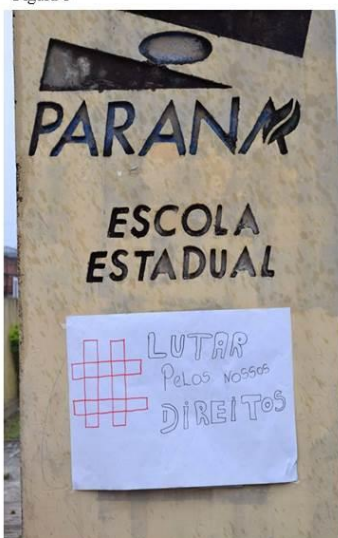 PARANÁ
ESCOLA
ESTADUAL
# LUTAR
PELOS NOSSOS
DIREITOS